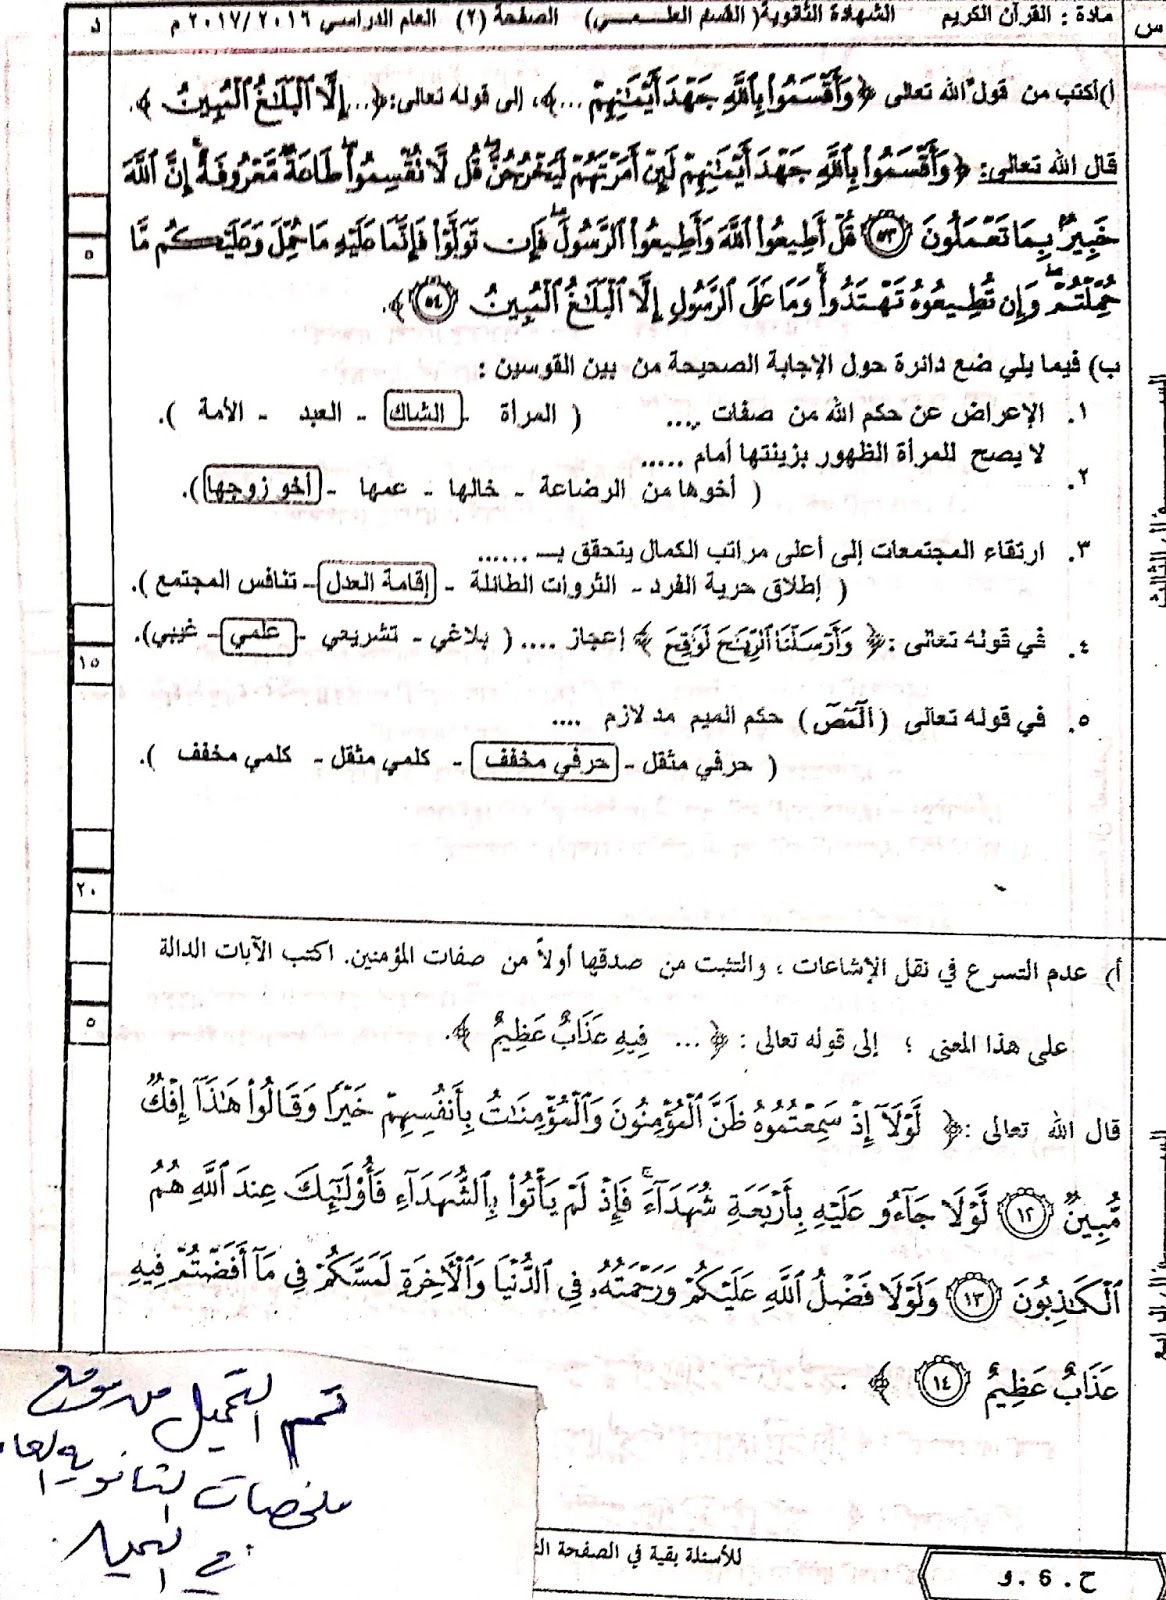 س مادة : القرآن الكريم الشهادة الثانوية ( القسم العلمي ) الصفحة (٢) العام الدراسي ٢٠١٦ / ٢٠١٧ م د
أ) اكتب من قول الله تعالى ﴿ وَأَقْسَمُوا۟ بِٱللَّهِ جَهْدَ أَيْمَـٰنِهِمْ ... ﴾، إلى قوله تعالى: ﴿ ... إِلَّا ٱلْبَلَـٰغُ ٱلْمُبِينُ ﴾.
قال الله تعالى: ﴿ وَأَقْسَمُوا۟ بِٱللَّهِ جَهْدَ أَيْمَـٰنِهِمْ لَئِنْ أَمَرْتَهُمْ لَيَخْرُجُنَّ ۖ قُل لَّا تُقْسِمُوا۟ ۖ طَاعَةٌ مَّعْرُوفَةٌ ۚ إِنَّ ٱللَّهَ
خَبِيرٌۢ بِمَا تَعْمَلُونَ ٥٣ قُلْ أَطِيعُوا۟ ٱللَّهَ وَأَطِيعُوا۟ ٱلرَّسُولَ ۖ فَإِن تَوَلَّوْا۟ فَإِنَّمَا عَلَيْهِ مَا حُمِّلَ وَعَلَيْكُم مَّا
حُمِّلْتُمْ ۖ وَإِن تُطِيعُوهُ تَهْتَدُوا۟ ۚ وَمَا عَلَى ٱلرَّسُولِ إِلَّا ٱلْبَلَـٰغُ ٱلْمُبِينُ ٥٤ ﴾.
٥
ب) فيما يلي ضع دائرة حول الإجابة الصحيحة من بين القوسين :
١. الإعراض عن حكم الله من صفات .... ( المرأة - الشاك - العبد - الأمة ).
٢. لا يصح للمرأة الظهور بزينتها أمام .....
( أخوها من الرضاعة - خالها - عمها - أخو زوجها ).
٣. ارتقاء المجتمعات إلى أعلى مراتب الكمال يتحقق بـ ......
( إطلاق حرية الفرد - الثروات الطائلة - إقامة العدل - تنافس المجتمع ).
٤. في قوله تعالى : ﴿ وَأَرْسَلْنَا ٱلرِّيَـٰحَ لَوَٰقِحَ ﴾ إعجاز .... ( بلاغي - تشريعي - علمي - غيبي).
١٥
٥. في قوله تعالى ( الٓمٓصٓ ) حكم الميم مد لازم ....
( حرفي مثقل - حرفي مخفف - كلمي مثقل - كلمي مخفف ).
٢٠
السؤال الثالث
أ) عدم التسرع في نقل الإشاعات ، والتثبت من صدقها أولاً من صفات المؤمنين. اكتب الآيات الدالة
على هذا المعنى ؛ إلى قوله تعالى : ﴿ ... فِيهِ عَذَابٌ عَظِيمٌ ﴾.
٥
قال الله تعالى : ﴿ لَّوْلَآ إِذْ سَمِعْتُمُوهُ ظَنَّ ٱلْمُؤْمِنُونَ وَٱلْمُؤْمِنَـٰتُ بِأَنفُسِهِمْ خَيْرًا وَقَالُوا۟ هَـٰذَآ إِفْكٌ
مُّبِينٌ ١٢ لَّوْلَا جَآءُو عَلَيْهِ بِأَرْبَعَةِ شُهَدَآءَ ۚ فَإِذْ لَمْ يَأْتُوا۟ بِٱلشُّهَدَآءِ فَأُو۟لَـٰٓئِكَ عِندَ ٱللَّهِ هُمُ
ٱلْكَـٰذِبُونَ ١٣ وَلَوْلَا فَضْلُ ٱللَّهِ عَلَيْكُمْ وَرَحْمَتُهُۥ فِى ٱلدُّنْيَا وَٱلْـَٔاخِرَةِ لَمَسَّكُمْ فِى مَآ أَفَضْتُمْ فِيهِ
عَذَابٌ عَظِيمٌ ١٤ ﴾ .
تم التحميل من موقع
ملخصات الثانوية
في
للأسئلة بقية في الصفحة
ح . 6 . و